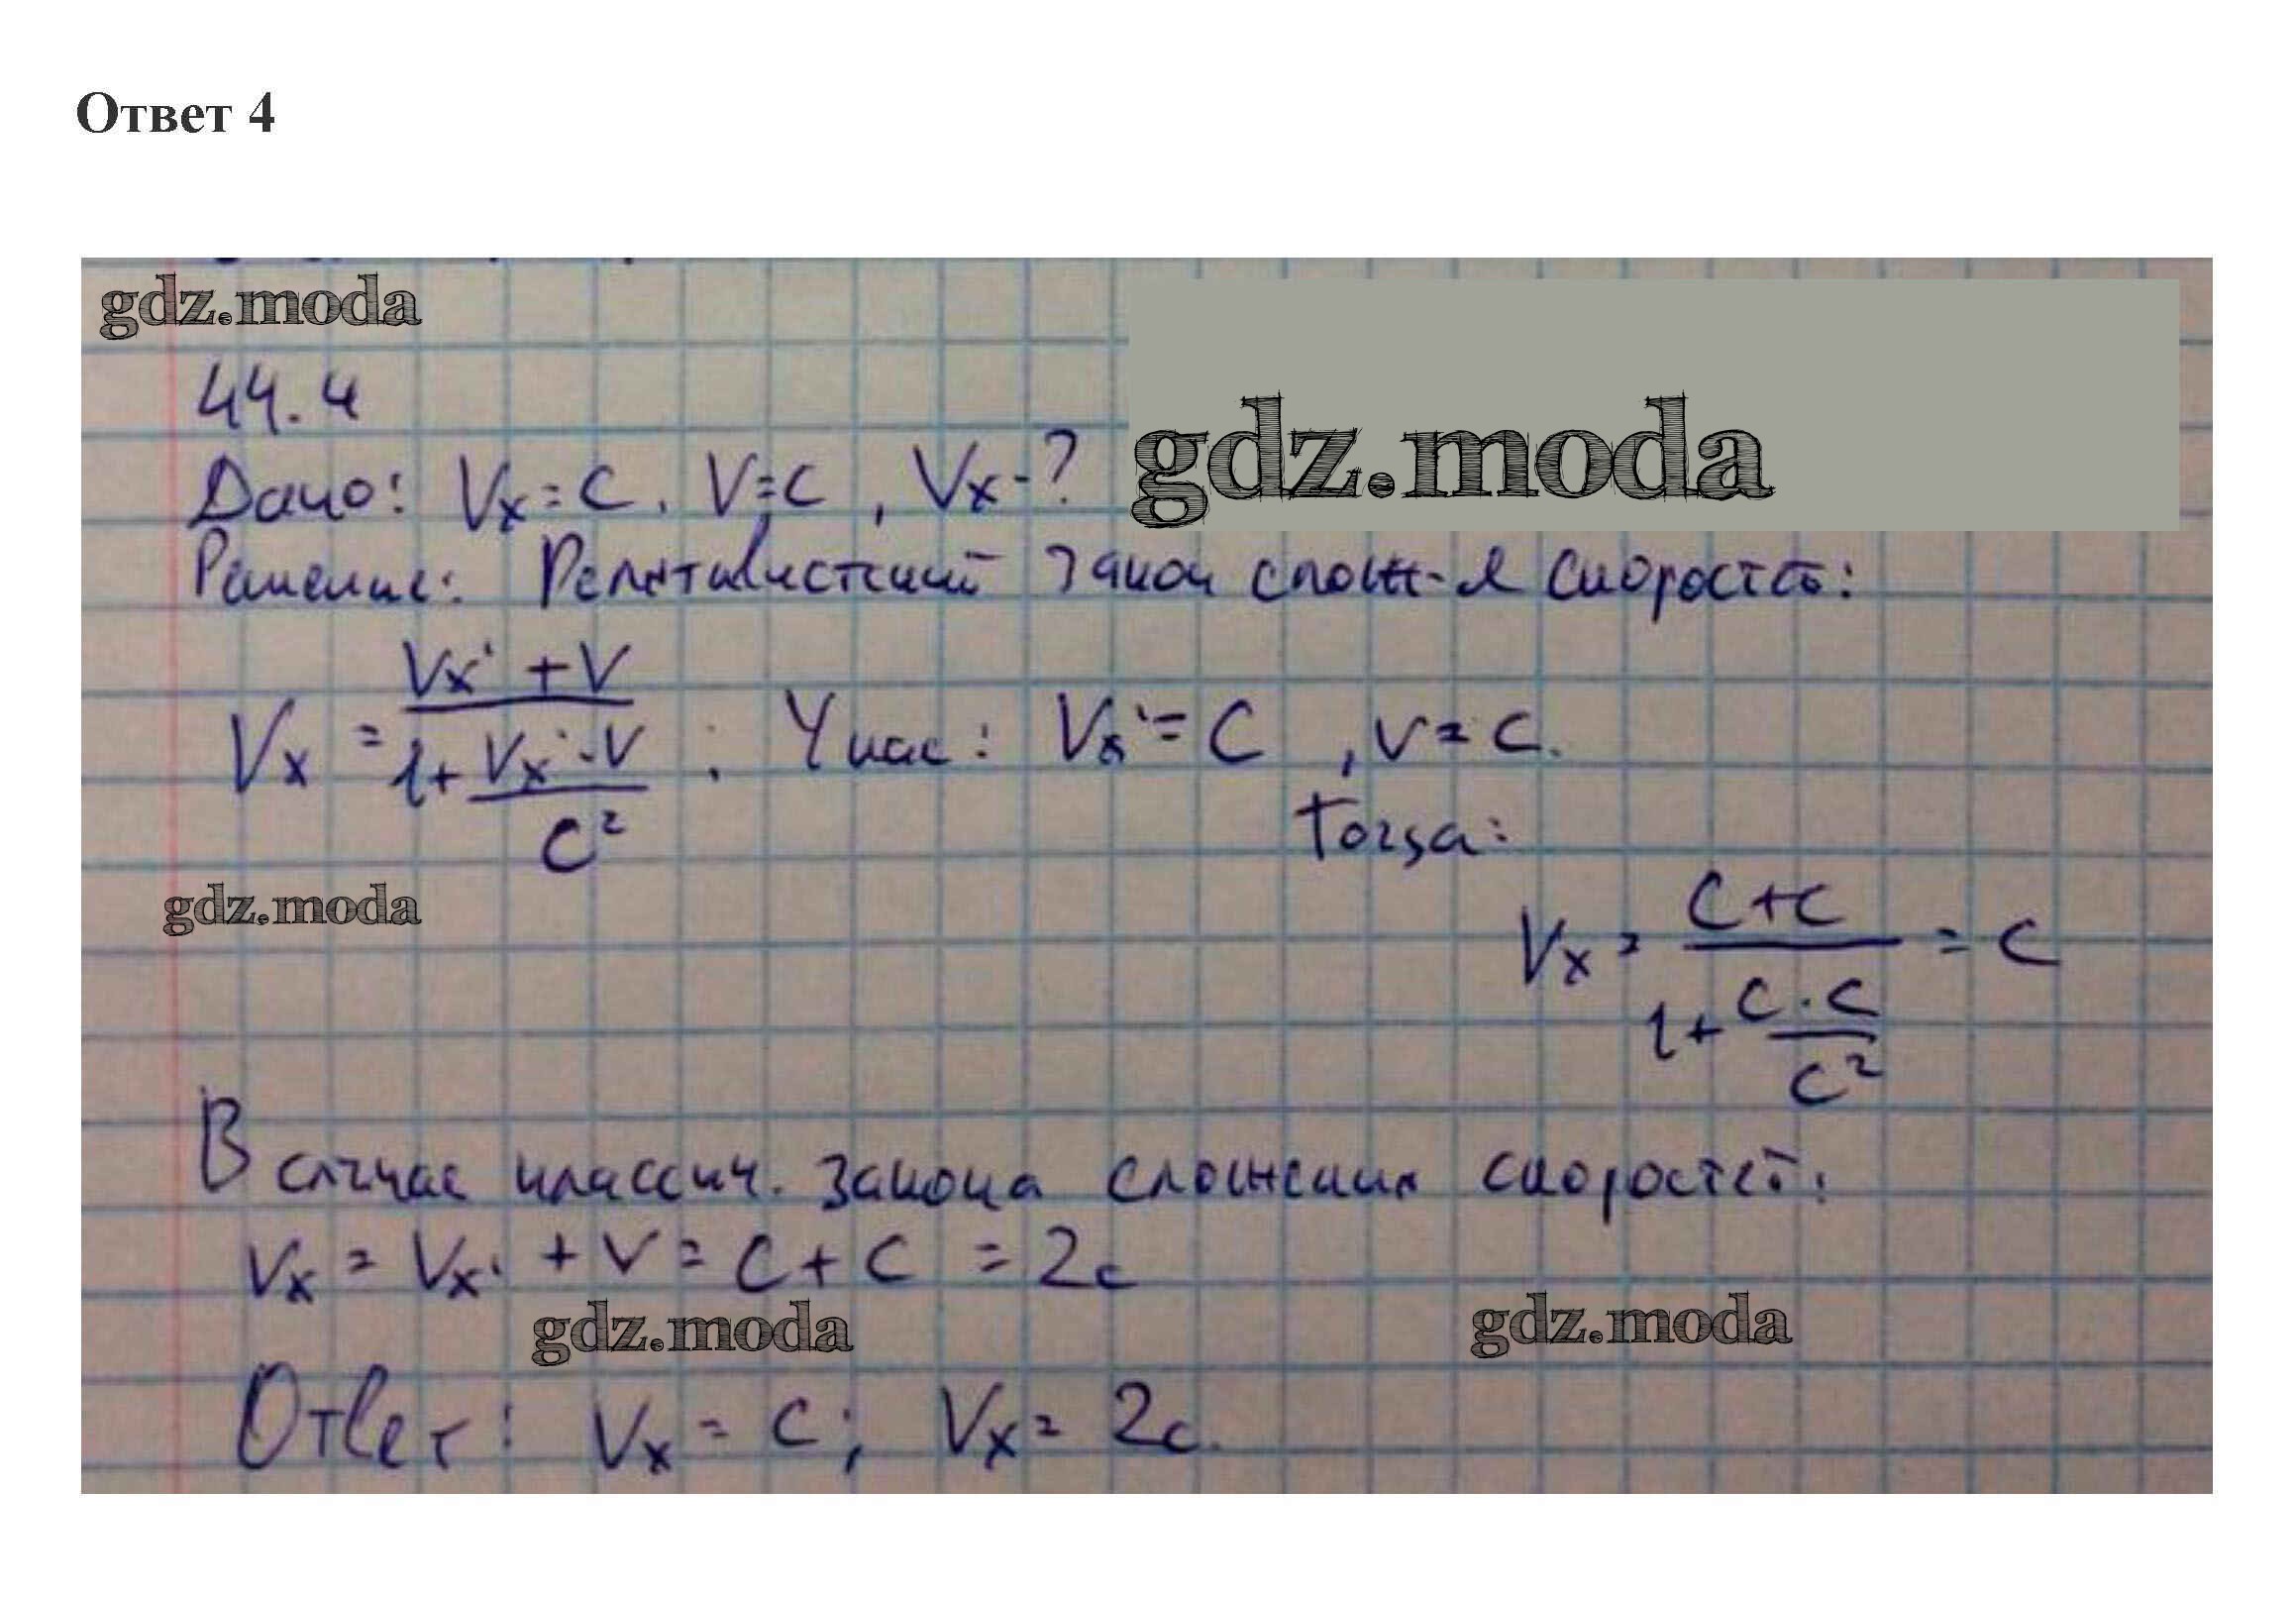 Ответ 4
gdz.moda
44.4
Дано: Vx = c, V = c, Vx - ?
gdz.moda
Решение: Релятивистский закон слож-я скоростей:
Vx = (Vx' + V) / (1 + (Vx' · V) / c²); У нас: Vx' = c, v = c.
Тогда:
gdz.moda
Vx = (c + c) / (1 + (c · c) / c²) = c
В случае классич. закона сложения скоростей:
Vx = Vx' + V = c + c = 2c
gdz.moda gdz.moda
Ответ: Vx = c; Vx = 2c.